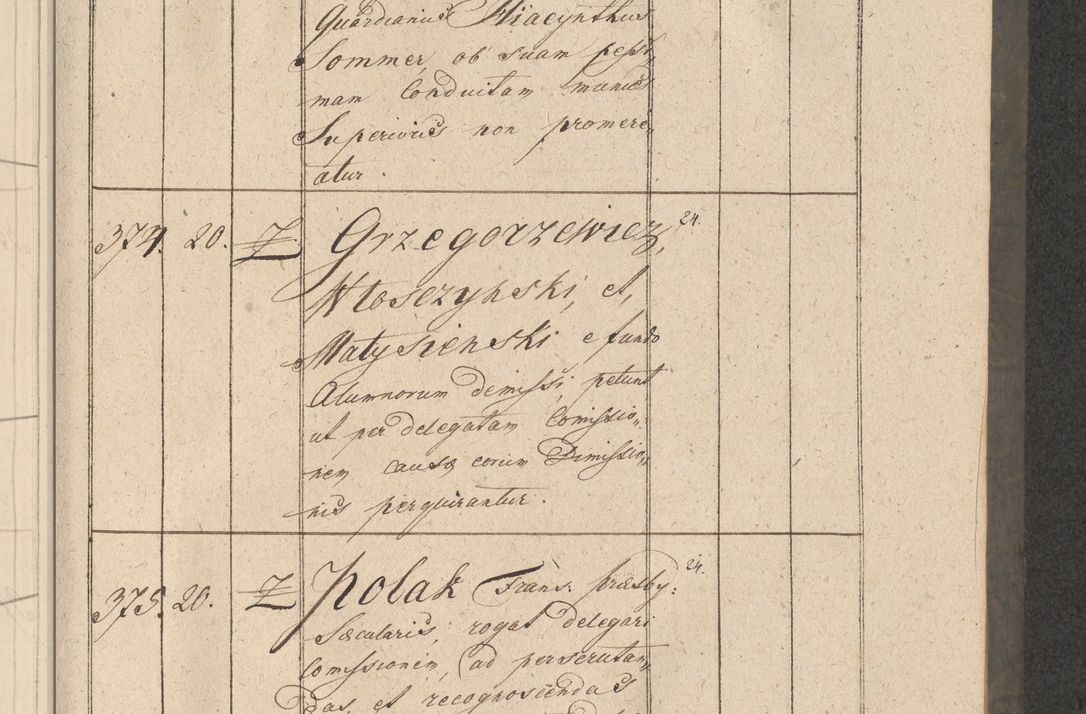 Guardianus Hiacynthus
Sommer, ob suam pessi„
mam Conduitam manus
Superioris non promere„
atur.
374. 20. Z Grzegorzewicz, 24.
Włosczyński, et,
Matysieński e fundo
Alumnorum demissi, petunt
ut per delegatam Comissio„
nem causæ eorum Dimissio„
nis perquirantur.
375. 20. Z Polak Frans: præsby: 24.
Sæcularis, rogat delegari
Comssionem, ad perscrutan„
das et recognoscendas